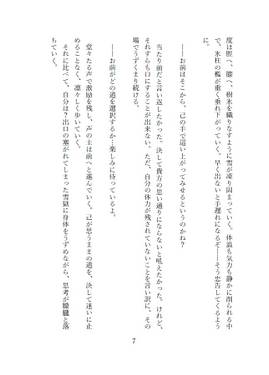 度は脛へ、膝へ、樹氷を織りなすように雪が凍り固まっていく。体温も気力も静かに削られる中
で、氷柱の檻が重く垂れ下がっていく。早く出ないと手遅れになるぞ――そう忠告してくるよう
に。
――お前はそこから、己の手で這い上がってみせるというのかね？
当たり前だと言い返したかった。決して貴方の思い通りにならないと吼えたかった。けれど、
それすらも口にすることが出来ない。ただ、自分の体力が残されていないことを言い訳に、その
場でうずくまり続ける。
――お前がどの道を選択するか、楽しみに待っているよ。
堂々たる声で激励を残し、声の主は前へと進んでいく。己が思うままの道を、決して迷いに止
めることなく、凛々しく歩いていく。
それに比べて、自分は？出口の塞がれてしまった雪嶺に身体をうずめながら、思考が朦朧と落
ちていく。
7